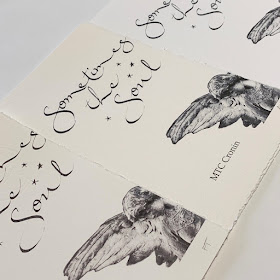 Sometimes
the
Soul
MTC Cronin
Sometimes
the
Soul